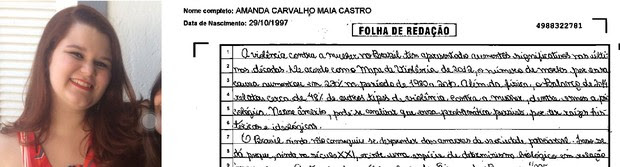 Nome completo: AMANDA CARVALHO MAIA CASTRO
Data de Nascimento: 29/10/1997
FOLHA DE REDAÇÃO
4988322781
1 A violência contra a mulher no Brasil tem apresentado aumentos significativos nas últi-
2 mas décadas. De acordo com o Mapa da Violência de 2012, o número de mortes por essa
3 causa aumentou em 230% no período de 1980 a 2010. Além da física, o Balanço de 2014
4 relatou cerca de 48% de outros tipos de violência contra a mulher, dentre esses a psi-
5 cológica. Nesse âmbito, pode-se analisar que essa problemática persiste por ter raízes his-
6 tóricas e ideológicas.
7 O Brasil ainda não conseguiu se desprender das amarras da sociedade patriarcal. Isso se
8 dá porque, ainda no século XXI, existe uma espécie de determinismo biológico em relação
9